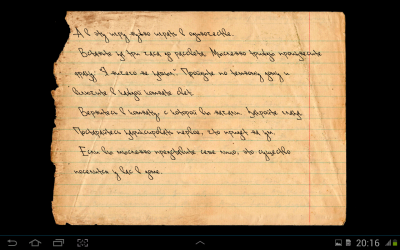 А в эту игру нужно играть в одиночестве.
Встаньте за три часа до рассвета. Мысленно трижды произнесите
фразу: "Я ничего не вижу". Пройдите по темному дому и
включите в каждой комнате свет.
Вернитесь в комнату, с которой вы начали. Закройте глаза.
Постарайтесь зафиксировать первое, что придет на ум.
Если вы мысленно представите себе что-то, это существо
поселится у вас в доме.
20:16